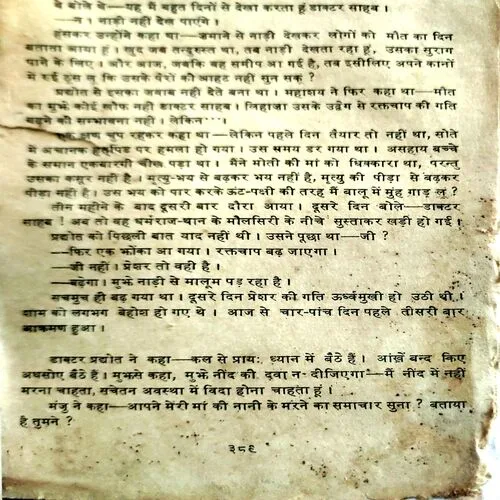 वे बोले थे—यह मैं बहुत दिनों से देखा करता हूं डाक्टर साहब ।
—न । नाड़ी नहीं देख पाएंगे ।
हंसकर उन्होंने कहा था—जमाने से नाड़ी देखकर लोगों को मौत का दिन
बताता आया हूं । खुद जब तन्दुरुस्त था, तब नाड़ी देखता रहा हूं, उसका सुराग
पाने के लिए । और आज, जबकि वह समीप आ गई है, तब इसीलिए अपने कानों
में रुई ठूंस लूं कि उसके पैरों की आहट नहीं सुन सकूं ?
प्रद्योत से इसका जवाब नहीं देते बना था । महाशय ने फिर कहा था—मौत
का मुझे कोई खौफ नहीं डाक्टर साहब । लिहाजा उसके उद्वेग से रक्तचाप की गति
बढ़ने की सम्भावना नहीं । लेकिन
एक क्षण चुप रहकर कहा था—लेकिन पहले दिन तैयार तो नहीं था, सोते
में अचानक हृत्पिंड पर हमला हो गया । उस समय डर गया था । असहाय बच्चे
के समान एकबारगी चीख पड़ा था । मैंने मोती की मां को धिक्कारा था, परन्तु
उसका कसूर नहीं है । मृत्यु-भय से बढ़कर भय नहीं है, मृत्यु की पीड़ा से बढ़कर
पीड़ा नहीं है । उस भय को पार करके ऊंट-पक्षी की तरह मैं बालू में मुंह गाड़ लूं ?
तीन महीने के बाद दूसरी बार दौरा आया । दूसरे दिन बोले—डाक्टर
साहब ! अब तो वह धर्मराज-थान के मौलसिरी के नीचे सुस्ताकर खड़ी हो गई ।
प्रद्योत को पिछली बात याद नहीं थी । उसने पूछा था—जी ?
—फिर एक झोंका आ गया । रक्तचाप बढ़ जाएगा ।
—जी नहीं । प्रेशर तो वही है ।
—बढ़ेगा । मुझे नाड़ी से मालूम पड़ रहा है ।
सचमुच ही बढ़ गया था । दूसरे दिन प्रेशर की गति ऊर्ध्वमुखी हो उठी थी ।
शाम को लगभग बेहोश हो गए थे । आज से चार-पांच दिन पहले तीसरी बार
आक्रमण हुआ ।
डाक्टर प्रद्योत ने कहा—कल से प्रायः ध्यान में बैठे हैं । आंखें बन्द किए
अधसोए बैठे हैं । मुझसे कहा, मुझे नींद की दवा न दीजिएगा—मैं नींद में नहीं
मरना चाहता, सचेतन अवस्था में विदा होना चाहता हूं ।
मंजु ने कहा—आपने मेरी मां की नानी के मरने का समाचार सुना ? बताया
है तुमने ?
३८९